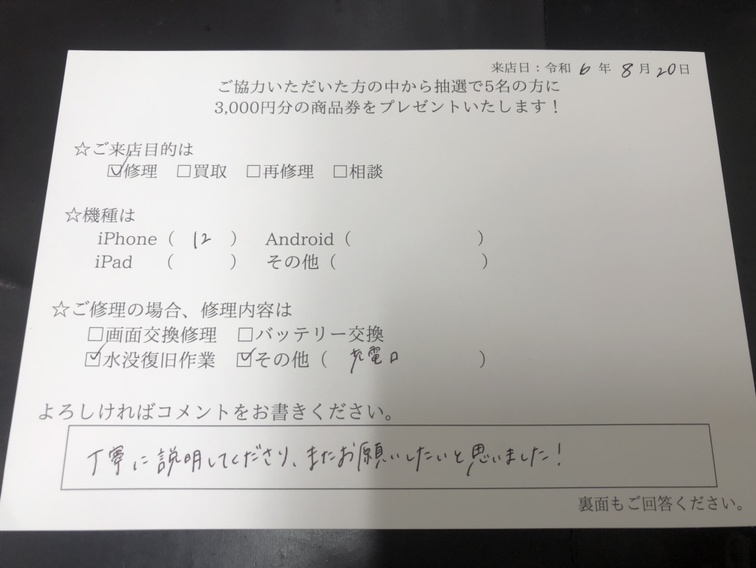 来店日：令和 6 年 8 月 20 日
ご協力いただいた方の中から抽選で5名の方に
3,000円分の商品券をプレゼントいたします！
☆ご来店目的は
☑修理 □買取 □再修理 □相談
☆機種は
iPhone（ 12 ） Android（ ）
iPad （ ） その他（ ）
☆ご修理の場合、修理内容は
□画面交換修理 □バッテリー交換
☑水没復旧作業 ☑その他（ 充電口 ）
よろしければコメントをお書きください。
丁寧に説明してくださり、またお願いしたいと思いました！
裏面もご回答ください。